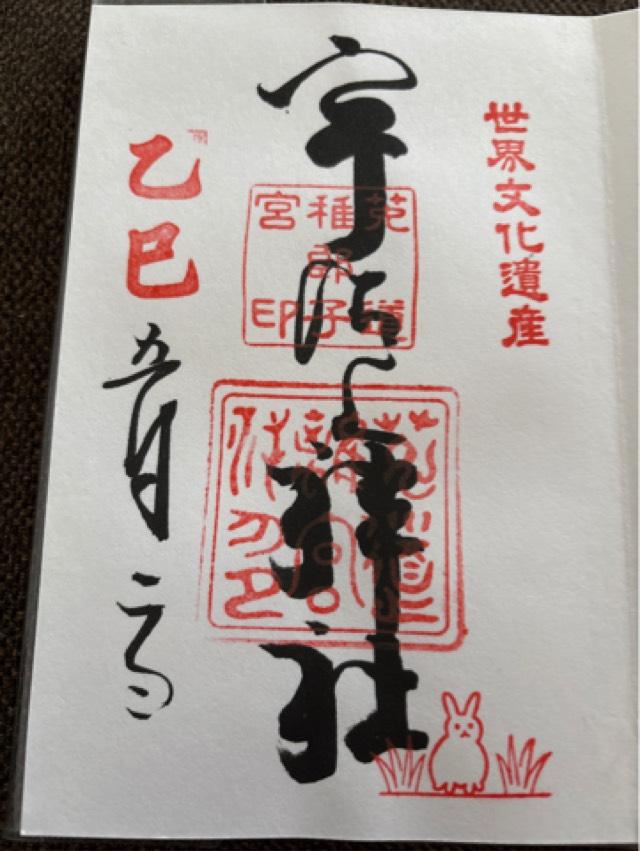 世界文化遺産
宇治上神社
菟道
稚郎子
宮印
乙巳
五月二日